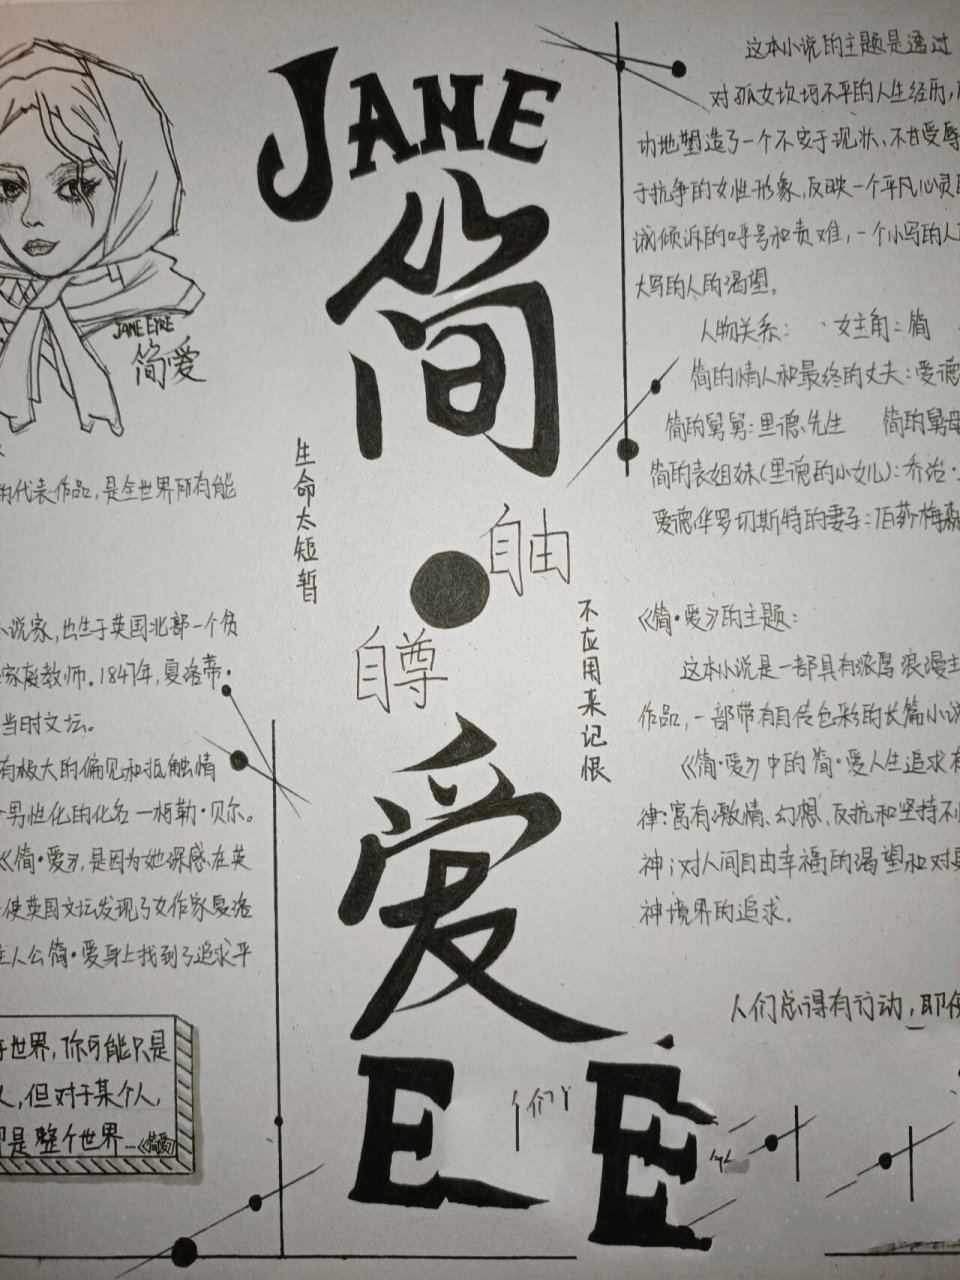 JANE
简
爱
JANE EYRE
简爱
的代表作品，是全世界所有能
生命太短暂
自由
自尊
不应用来记恨
小说家，出生于英国北部一个贫
家庭教师。1847年，夏洛蒂·
当时文坛。
有极大的偏见和抵触情
男性化的化名—柯勒·贝尔。
《简·爱》，是因为她深感在英
使英国文坛发现了女作家夏洛
主人公简·爱身上找到了追求平
世界，你可能只是
人，但对于某个人，
即是整个世界…《简爱》
这本小说的主题是透过
对孤女坎坷不平的人生经历，
功地塑造了一个不安于现状、不甘受辱
于抗争的女性形象，反映一个平凡心灵
诚倾诉的呼号和责难，一个小写的人
大写的人的渴望。
人物关系： 女主角：简
简的情人和最终的丈夫：爱德
简的舅舅：里德先生 简的舅母
简的表姐妹（里德的小女儿）：乔治·
爱德华罗切斯特的妻子：伯莎·梅森
《简·爱》的主题：
这本小说是一部具有浓厚浪漫主
作品，一部带有自传色彩的长篇小说
《简·爱》中的简·爱人生追求有
律：富有激情、幻想、反抗和坚持不
神；对人间自由幸福的渴望和对
神境界的追求。
人们总得有行动，即使
E
们
E